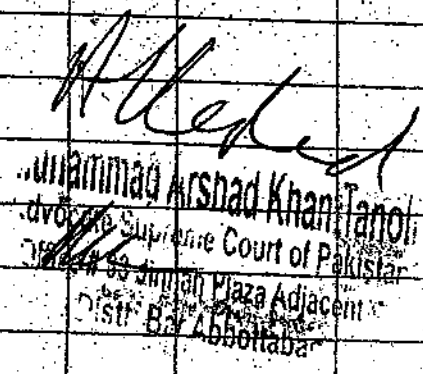 Attested
Muhammad Arshad Khan Tanoli
Advocate Supreme Court of Pakistan
Office # 33 Jinnah Plaza Adjacent
Distt Bar Abbottabad